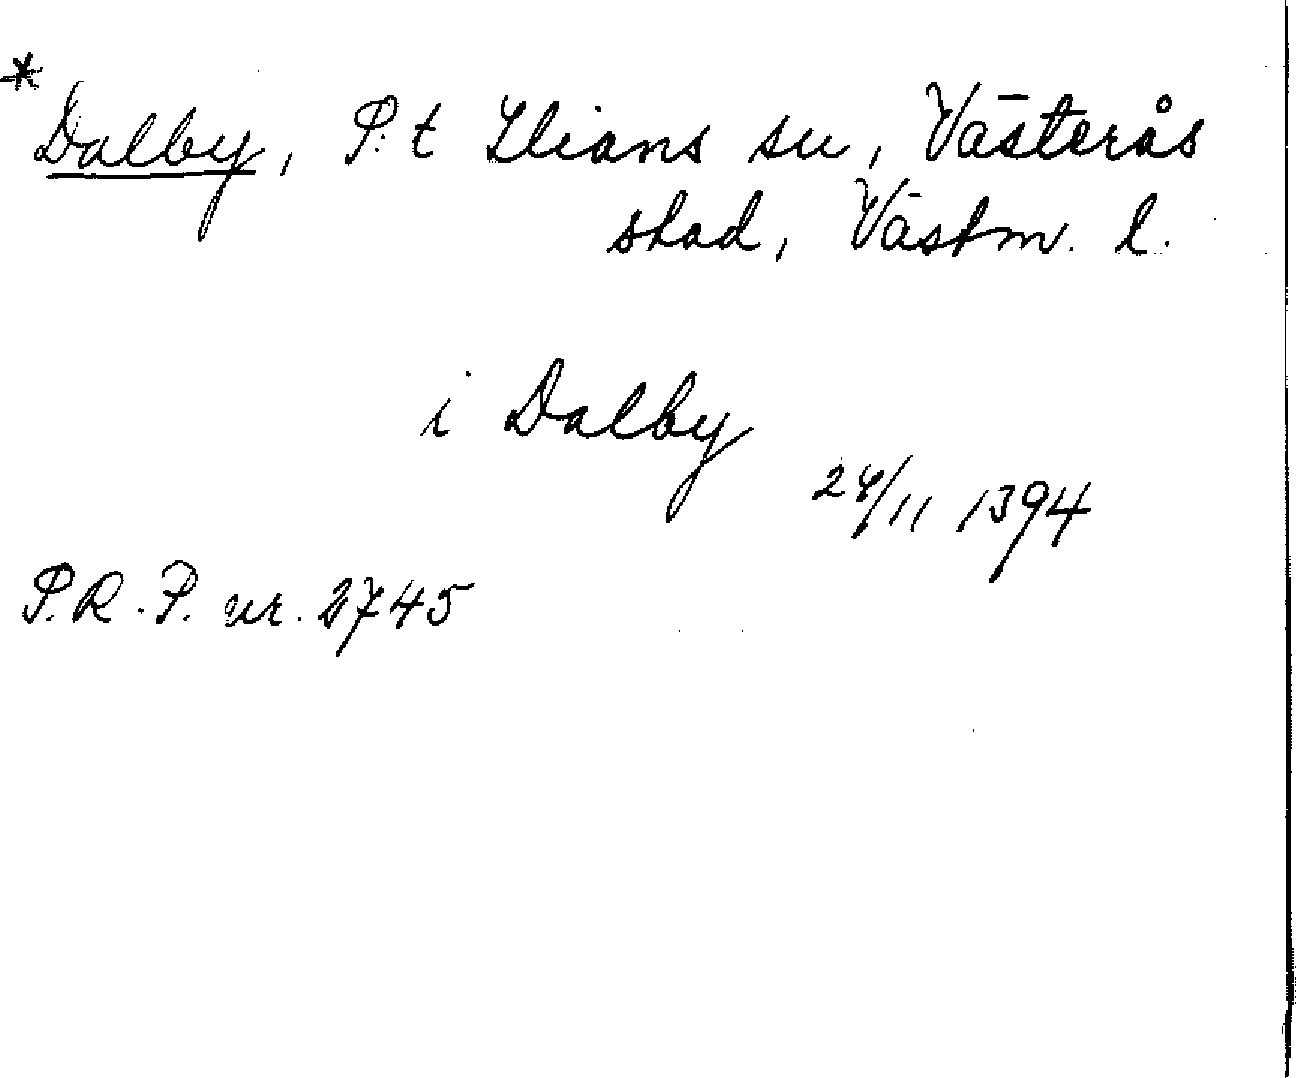 * Dalby, S:t Ilians sn, Västerås
stad, Västm. l.
i Dalby
24/11 1394
S.R.P. nr. 2745